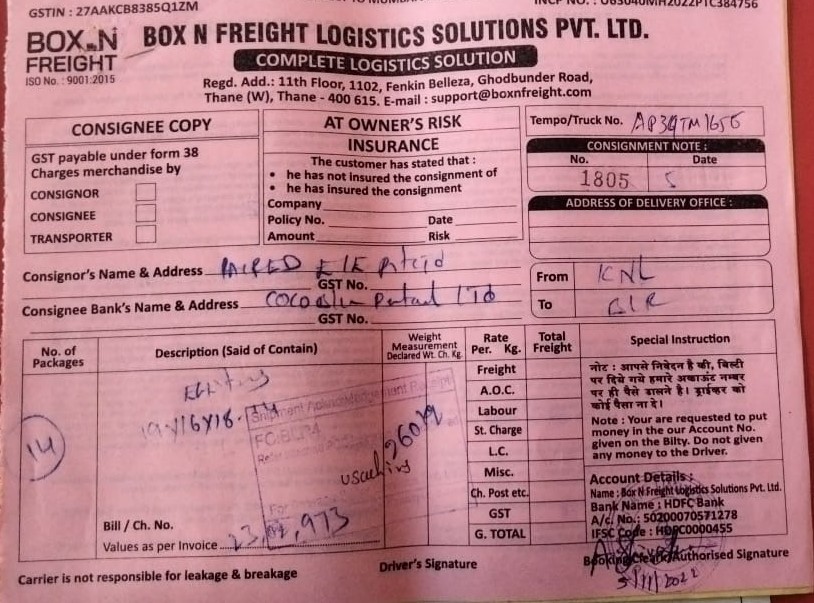 GSTIN : 27AAKCB8385Q1ZM
BOX N FREIGHT
ISO No. : 9001:2015
BOX N FREIGHT LOGISTICS SOLUTIONS PVT. LTD.
COMPLETE LOGISTICS SOLUTION
Regd. Add.: 11th Floor, 1102, Fenkin Belleza, Ghodbunder Road,
Thane (W), Thane - 400 615. E-mail : support@boxnfreight.com
CONSIGNEE COPY
GST payable under form 38
Charges merchandise by
CONSIGNOR
CONSIGNEE
TRANSPORTER
AT OWNER'S RISK
INSURANCE
The customer has stated that :
• he has not insured the consignment of
• he has insured the consignment
Company
Policy No. Date
Amount Risk
Tempo/Truck No.
CONSIGNMENT NOTE :
No. Date
1805 5
ADDRESS OF DELIVERY OFFICE :
Consignor's Name & Address
GST No.
Consignee Bank's Name & Address
GST No.
From KNL
To BLR
No. of Packages
Description (Said of Contain)
Weight
Measurement
Declared Wt. Ch. Kg.
Rate Per. Kg.
Total Freight
Special Instruction
14
Freight
A.O.C.
Labour
St. Charge
L.C.
Misc.
Ch. Post etc.
GST
G. TOTAL
नोट : आपसे निवेदन है की, बिल्टी
पर दिये गये हमारे अकाऊंट नम्बर
पर ही पैसे डालने है। ड्राईवर को
कोई पैसा ना दे।
Note : Your are requested to put
money in the our Account No.
given on the Bilty. Do not given
any money to the Driver.
Account Details :
Name : Box N Freight Logistics Solutions Pvt. Ltd.
Bank Name : HDFC Bank
A/c. No.: 50200070571278
IFSC Code : HDFC0000455
Shipment Acknowledgement Receipt
Bill / Ch. No.
Values as per Invoice
Carrier is not responsible for leakage & breakage
Driver's Signature
Booking Clerk/Authorised Signature
5/11/2022